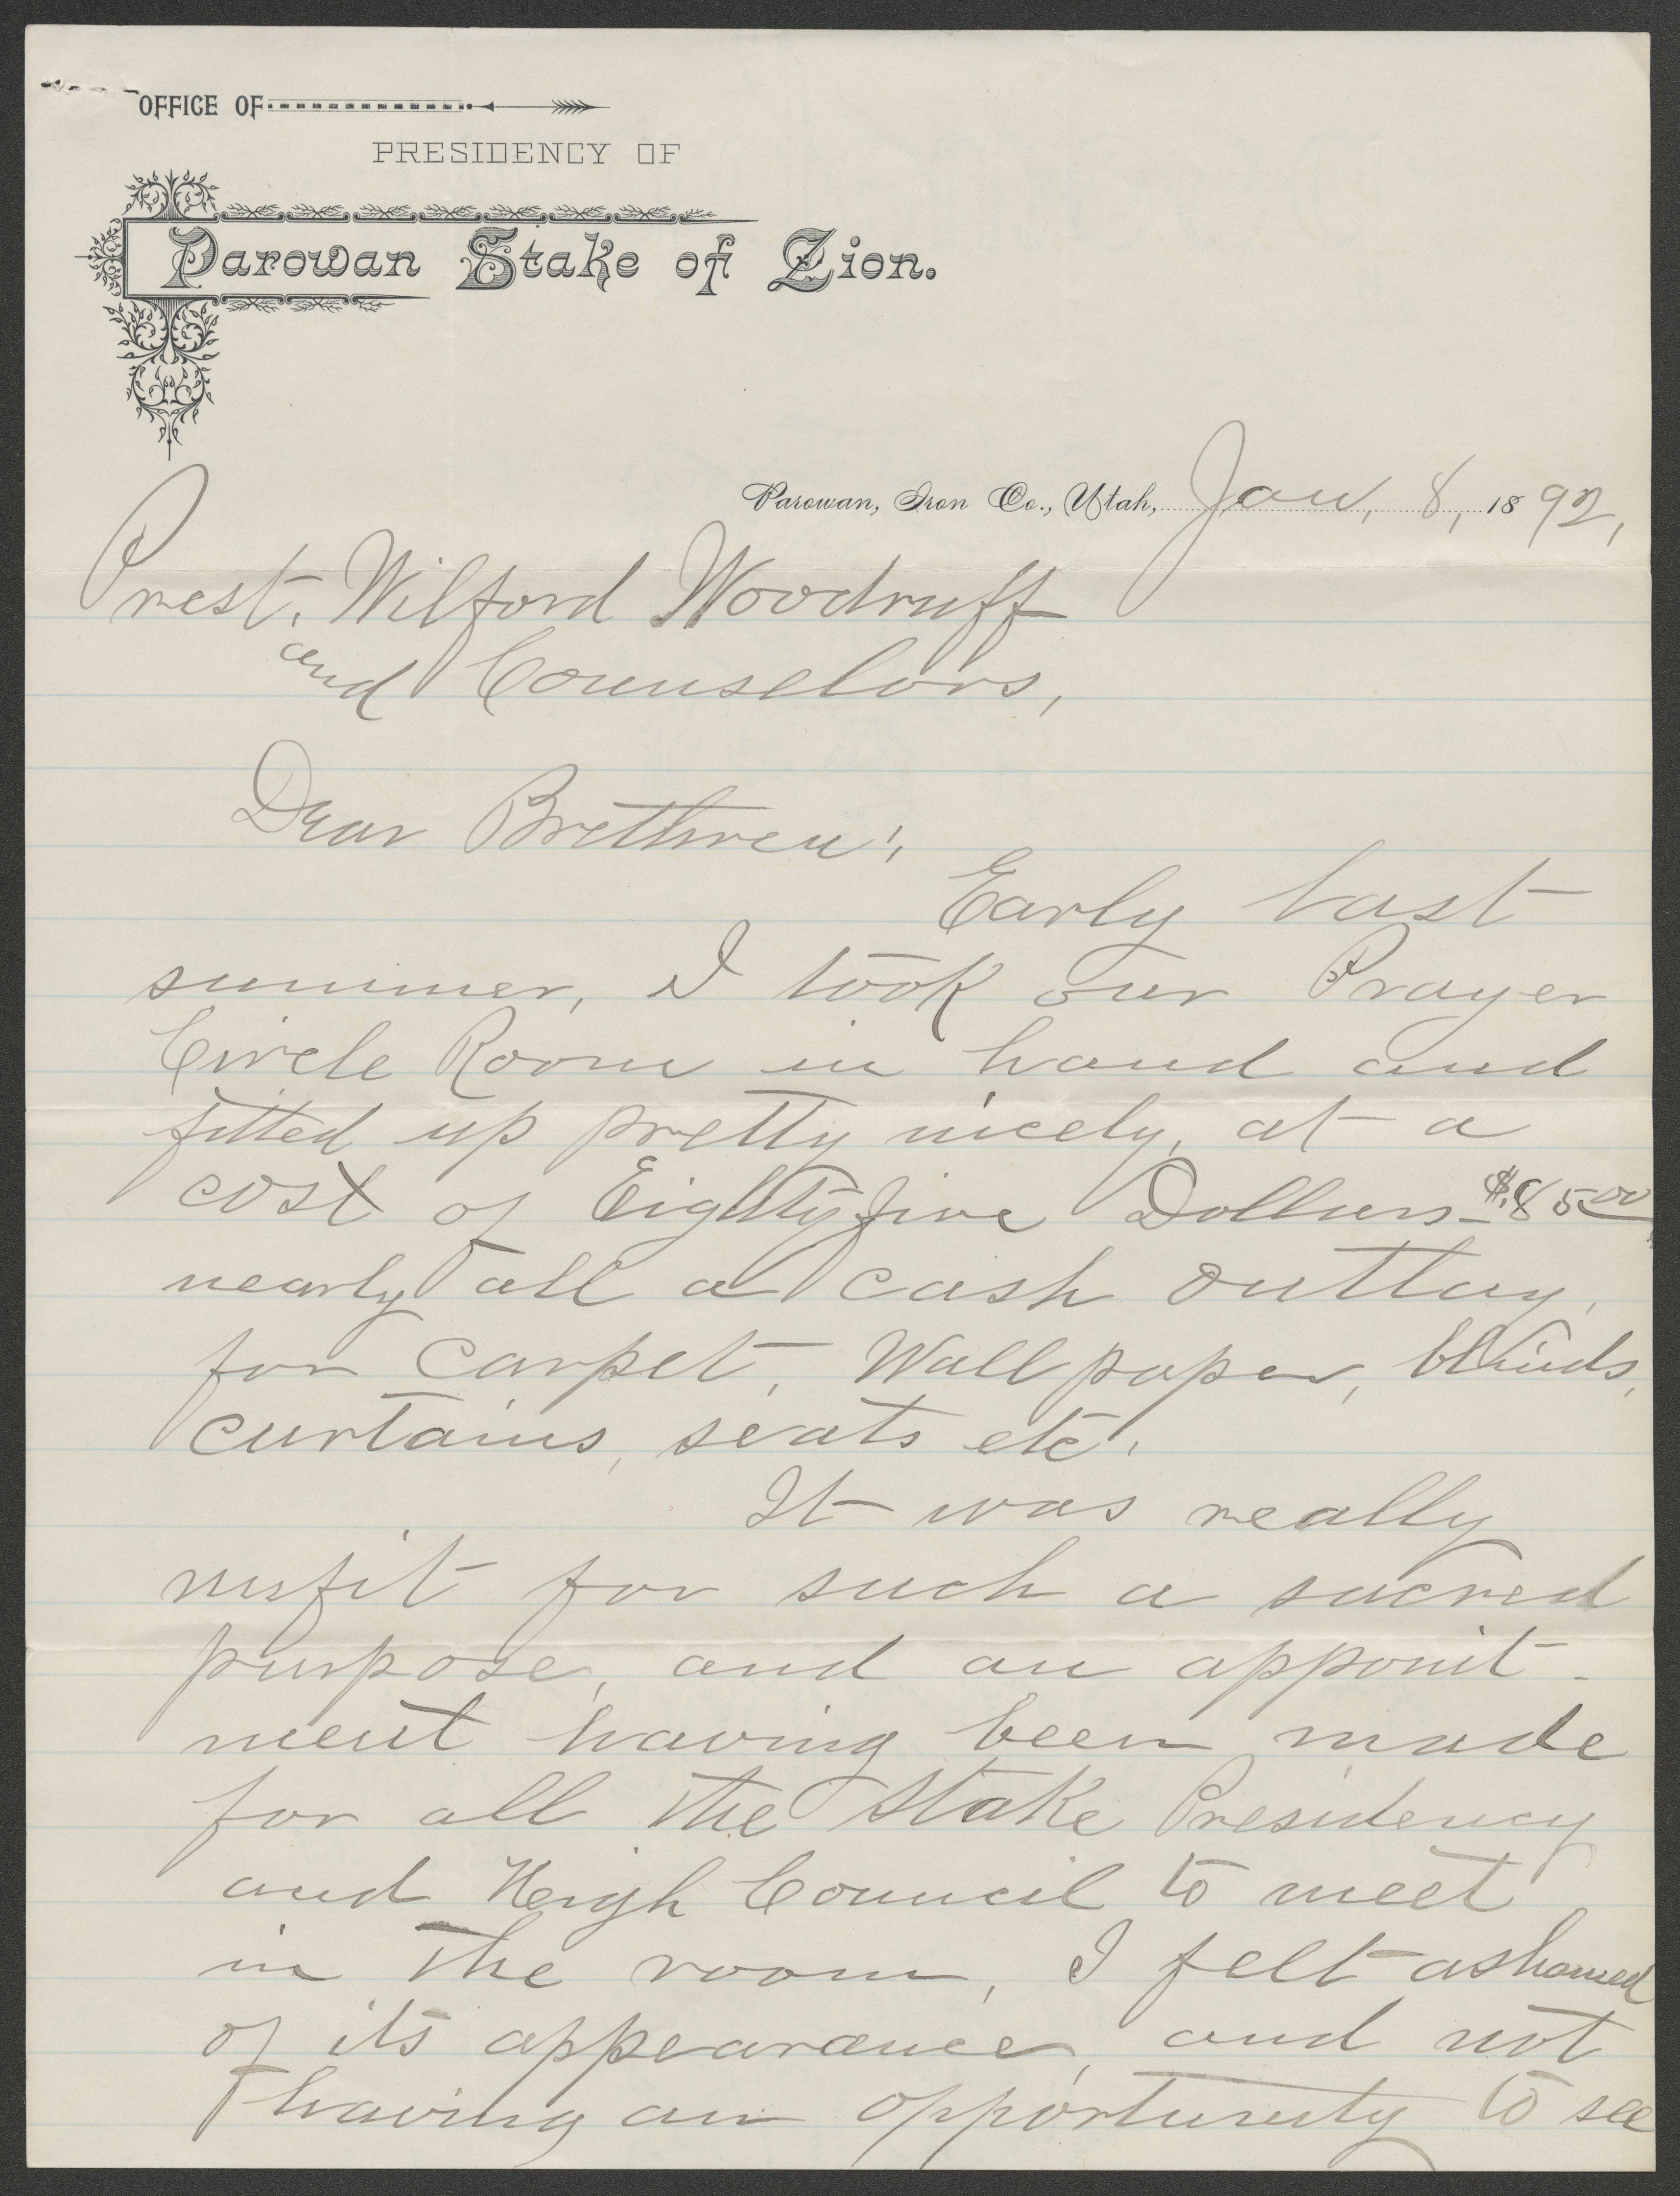 OFFICE OF
PRESIDENCY OF
Parowan Stake of Zion.
Parowan, Iron Co., Utah, Jan, 8, 1892,
Prest. Wilford Woodruff
and Counselors,
Dear Brethren;
Early last
summer, I took our Prayer
Circle Room in hand and
fitted up pretty nicely, at a
cost of Eighty five Dollars $85.00
nearly all a cash outlay,
for carpet, Wall paper, blinds,
curtains, seats etc.
It was really
unfit for such a sacred
purpose, and an appoint-
ment having been made
for all the Stake Presidency
and High Council to meet
in the room, I felt ashamed
of its appearance, and not
having an opportunity to see